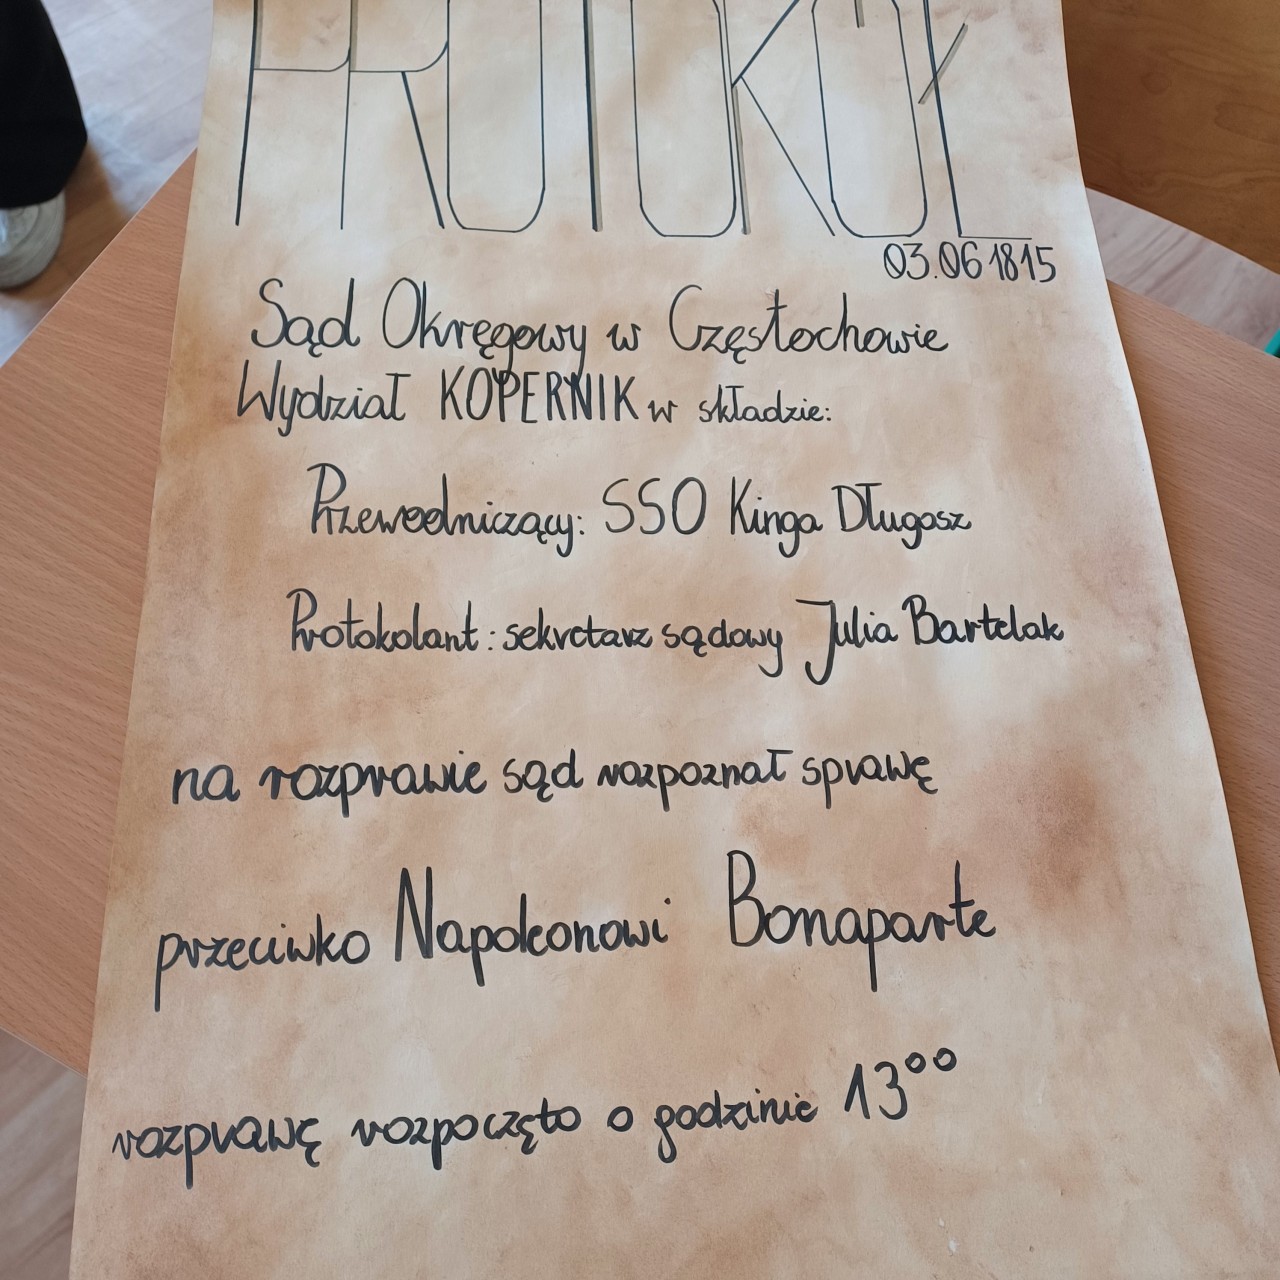 PROTOKÓŁ
03.06 1815
Sąd Okręgowy w Częstochowie
Wydział KOPERNIK w składzie:
Przewodniczący: SSO Kinga Długosz
Protokolant: sekretarz sądowy Julia Bartelak
na rozprawie sąd rozpoznał sprawę
przeciwko Napoleonowi Bonaparte
rozprawę rozpoczęto o godzinie 13⁰⁰